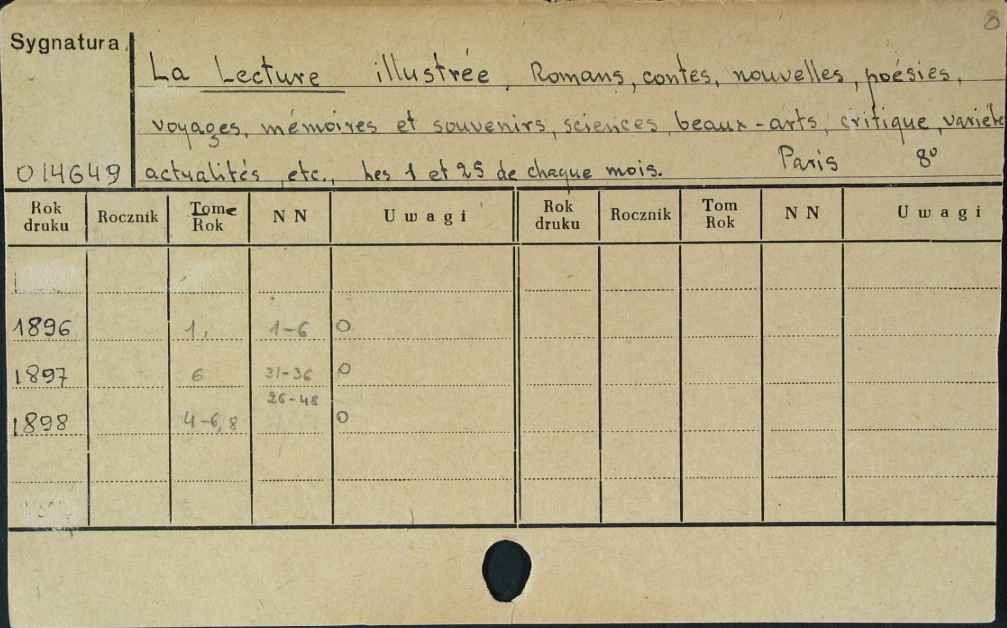 8
Sygnatura
La Lecture illustrée. Romans, contes, nouvelles, poésies,
voyages, mémoires et souvenirs, sciences, beaux-arts, critique, variétés
014649 actualités, etc., Les 1 et 25 de chaque mois. Paris 8º
Rok druku Rocznik Tome Rok N N Uwagi Rok druku Rocznik Tom Rok N N Uwagi
1896 1, 1-6 O
1897 6 31-36 O
26-48
1898 4-6, 8 O